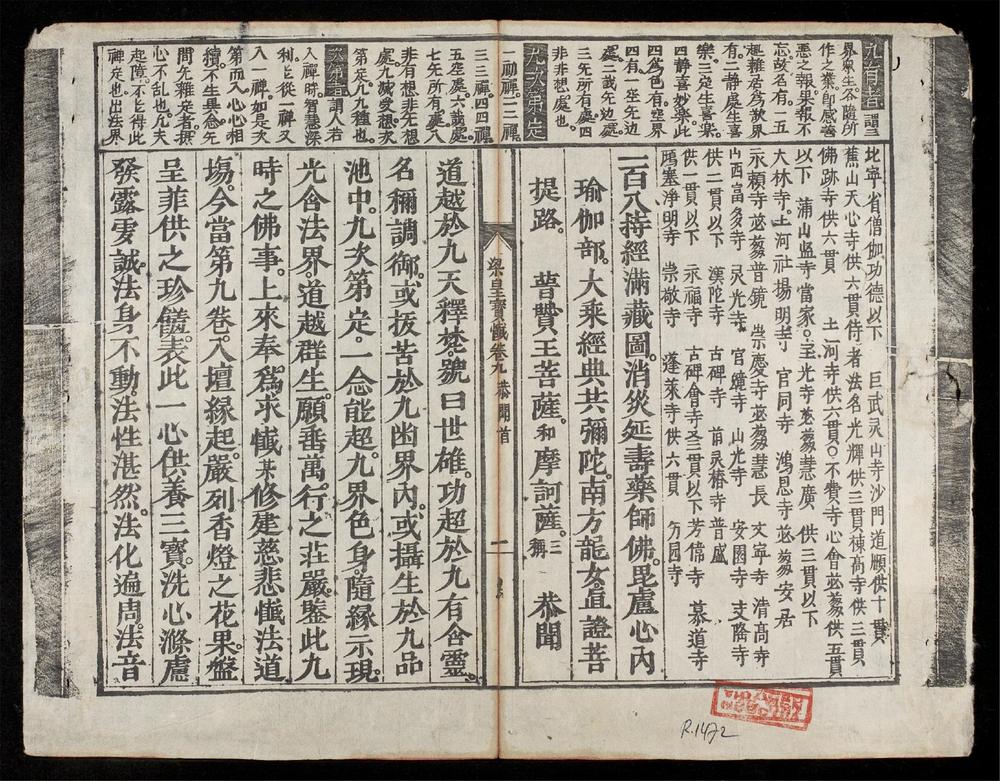 九有者謂三
界衆生各隨所
作之業即感善
惡之報果報不
忘故名有一五
趣雜居爲欲界
有二静處生喜
樂三定生喜樂
四静喜妙樂此
四爲色有空界
四有一空无边
處二識无边處
三无所有處四
非非想處也
九次第定
一初禪二二禪
三三禪四四禪
五空處六識處
七无所有處八
非有想非无想
處九滅受想次
第定九九種也
次第者謂人若
入禪時智慧深
利能從一禪又
入一禪如是次
第而入心心相
續不生異念无
間无雜定者攝
心不乱也凡夫
起障不能得此
禪定也出法界
北寧省僧伽功德以下 巨武灵山寺沙門道願供十貫
蕉山天心寺供六貫侍者法名光輝供三貫棟高寺供三貫
佛跡寺供六貫 土河寺供六貫○不費寺心會苾蒭供五貫
以下 蒲山盆寺當家○至光寺苾蒭慧廣 供三貫以下
大林寺。土河社揚明寺 官同寺 鴻恩寺苾蒭安居
永賴寺苾蒭普鏡 崇慶寺苾蒭慧長 文寧寺 清高寺
山西富多寺 灵光寺 官鐘寺 山光寺 安園寺 支隆寺
供二貫以下 漢陀寺 古碑寺 前灵椿寺 普盛
供一貫以下 永福寺 古碑會寺各一貫以下芳偣寺 慕道寺
鴈塞浄明寺 崇敬寺 蓬萊寺供六貫 方园寺
一百八持經滿藏圖。消災延壽藥師佛。毘盧心內
瑜伽部。大乘經典共彌陀。南方龍女直證菩
提路。 普贊王菩薩。和摩訶薩。三稱 恭聞
梁皇寶懺卷九 恭聞首 一
道越於九天釋梵號曰世雄。功超於九有含靈。
名稱調御。或拔苦於九幽界內。或攝生於九品
池中。九次第定。一念能超。九界色身。隨緣示現。
光含法界。道越群生。願垂萬行之莊嚴。鑒此九
時之佛事。上來奉爲求懺某修建慈悲懺法道
塲。今當第九卷。入壇緣起。嚴列香燈之花果。盤
呈菲供之珍饈。表此一心供養三寶。洗心滌慮
發露虔誠。法身不動。法性湛然。法化遍周。法音
R.1472